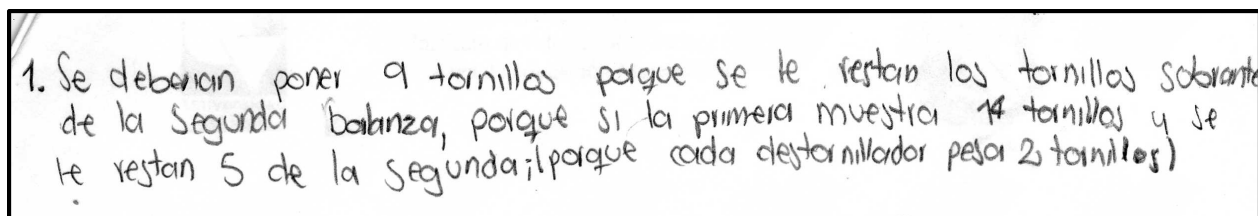 1. Se deberian poner 9 tornillos porque se le restan los tornillos sobrante
de la segunda balanza, porque si la primera muestra 14 tornillos y se
le restan 5 de la segunda;(porque cada destornillador pesa 2 tornillos)